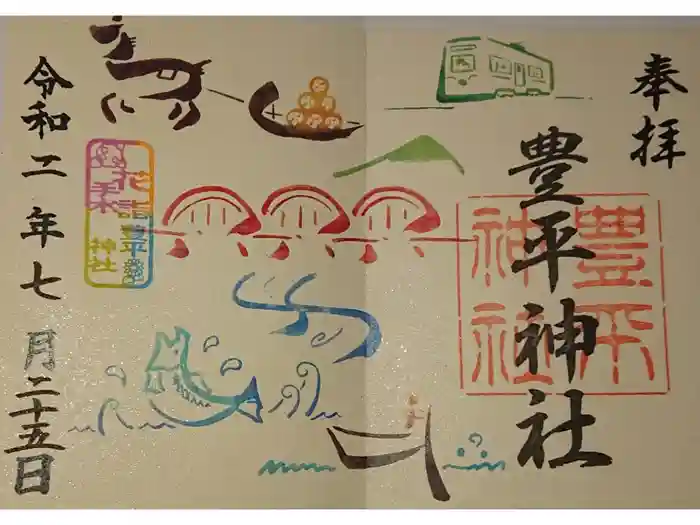 奉拝
豊平神社
豊平
神社
花詣
豊平
神社
令和二年七月二十五日